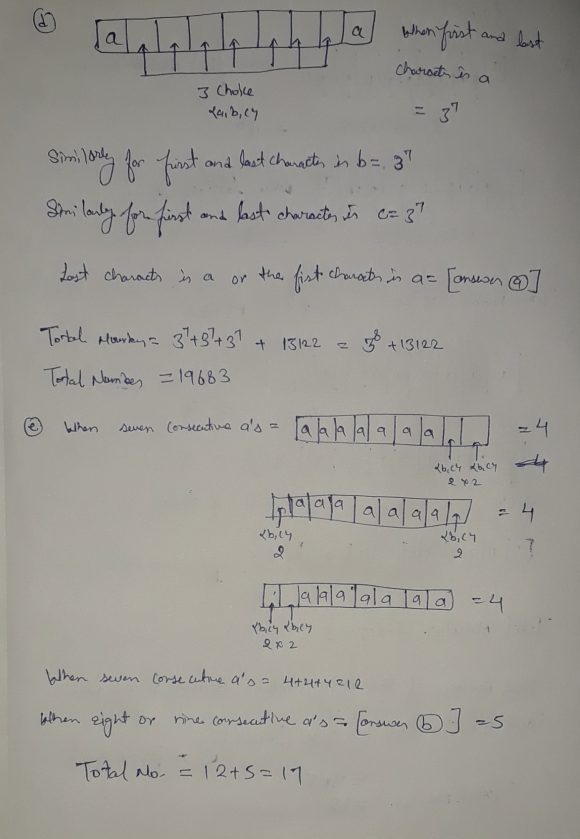 (d) a a When first and last
character is a
3 choice
{a, b, c} = 3^7
Similarly for first and last character is b = 3^7
Similarly for first and last character is c = 3^7
Last character is a or the first character is a = [answer (a)]
Total Number = 3^7+3^7+3^7 + 13122 = 3^8 + 13122
Total Number = 19683
(e) When seven consecutive a's = a a a a a a a = 4
{b,c} {b,c}
2 x 2
a a a a a a a = 4
{b,c} {b,c} ?
2 2
a a a a a a a = 4
{b,c} {b,c}
2 x 2
When seven consecutive a's = 4+4+4=12
When eight or nine consecutive a's = [answer (b)] = 5
Total No. = 12+5=17